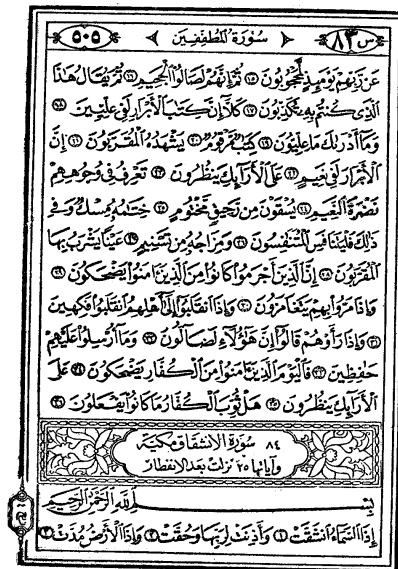 ٥٠٥ سورة المطففين س ٨٣
عَن رَّبِّهِمْ يَوْمَئِذٍ لَّمَحْجُوبُونَ ١٥ ثُمَّ إِنَّهُمْ لَصَالُوا الْجَحِيمِ ١٦ ثُمَّ يُقَالُ هَٰذَا
الَّذِي كُنتُم بِهِ تُكَذِّبُونَ ١٧ كَلَّا إِنَّ كِتَابَ الْأَبْرَارِ لَفِي عِلِّيِّينَ ١٨
وَمَا أَدْرَاكَ مَا عِلِّيُّونَ ١٩ كِتَابٌ مَّرْقُومٌ ٢٠ يَشْهَدُهُ الْمُقَرَّبُونَ ٢١ إِنَّ
الْأَبْرَارَ لَفِي نَعِيمٍ ٢٢ عَلَى الْأَرَائِكِ يَنظُرُونَ ٢٣ تَعْرِفُ فِي وُجُوهِهِمْ
نَضْرَةَ النَّعِيمِ ٢٤ يُسْقَوْنَ مِن رَّحِيقٍ مَّخْتُومٍ ٢٥ خِتَامُهُ مِسْكٌ وَفِي
ذَٰلِكَ فَلْيَتَنَافَسِ الْمُتَنَافِسُونَ ٢٦ وَمِزَاجُهُ مِن تَسْنِيمٍ ٢٧ عَيْنًا يَشْرَبُ بِهَا
الْمُقَرَّبُونَ ٢٨ إِنَّ الَّذِينَ أَجْرَمُوا كَانُوا مِنَ الَّذِينَ ءَامَنُوا يَضْحَكُونَ ٢٩
وَإِذَا مَرُّوا بِهِمْ يَتَغَامَزُونَ ٣٠ وَإِذَا انقَلَبُوا إِلَىٰ أَهْلِهِمُ انقَلَبُوا فَكِهِينَ
٣١ وَإِذَا رَأَوْهُمْ قَالُوا إِنَّ هَٰؤُلَاءِ لَضَالُّونَ ٣٢ وَمَا أُرْسِلُوا عَلَيْهِمْ
حَافِظِينَ ٣٣ فَالْيَوْمَ الَّذِينَ ءَامَنُوا مِنَ الْكُفَّارِ يَضْحَكُونَ ٣٤ عَلَى
الْأَرَائِكِ يَنظُرُونَ ٣٥ هَلْ ثُوِّبَ الْكُفَّارُ مَا كَانُوا يَفْعَلُونَ ٣٦
٨٤ سورة الانشقاق مكية
وآياتها ٢٥ نزلت بعد الانفطار
بِسْمِ اللَّهِ الرَّحْمَٰنِ الرَّحِيمِ
إِذَا السَّمَاءُ انشَقَّتْ ١ وَأَذِنَتْ لِرَبِّهَا وَحُقَّتْ ٢ وَإِذَا الْأَرْضُ مُدَّتْ ٣